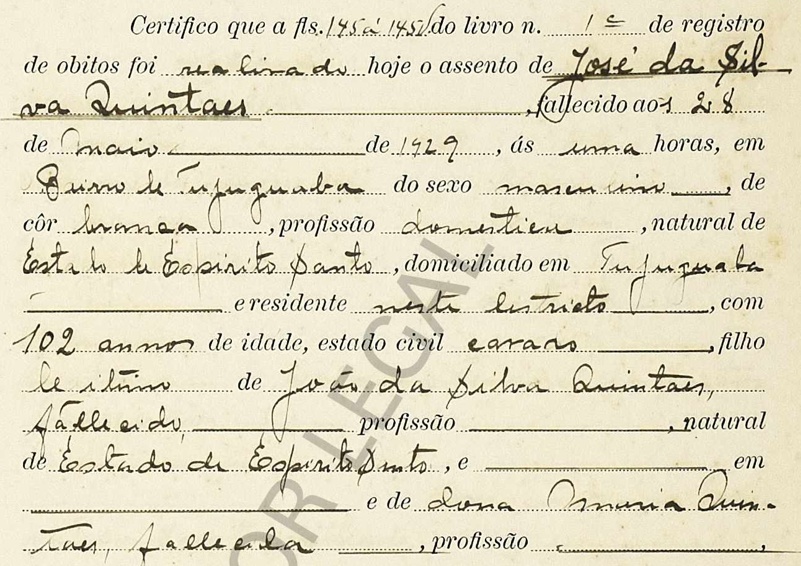 Certifico que a fls. 145 á 145v do livro n. 1º de registro
de obitos foi realizado hoje o assento de José da Sil-
va Quintaes, fallecido aos 28
de maio de 1929, ás uma horas, em
Birro de Tujuguaba do sexo masculino, de
côr branca, profissão domestica, natural de
Estado de Espirito Santo, domiciliado em Tujuguaba
e residente neste destricto, com
102 annos de idade, estado civil casado, filho
legitimo de João da Silva Quintaes,
fallecido, profissão, natural
de Estado de Espirito Santo, e em
e de dona Maria Quin-
taes, fallecida, profissão,
OR LEGAL